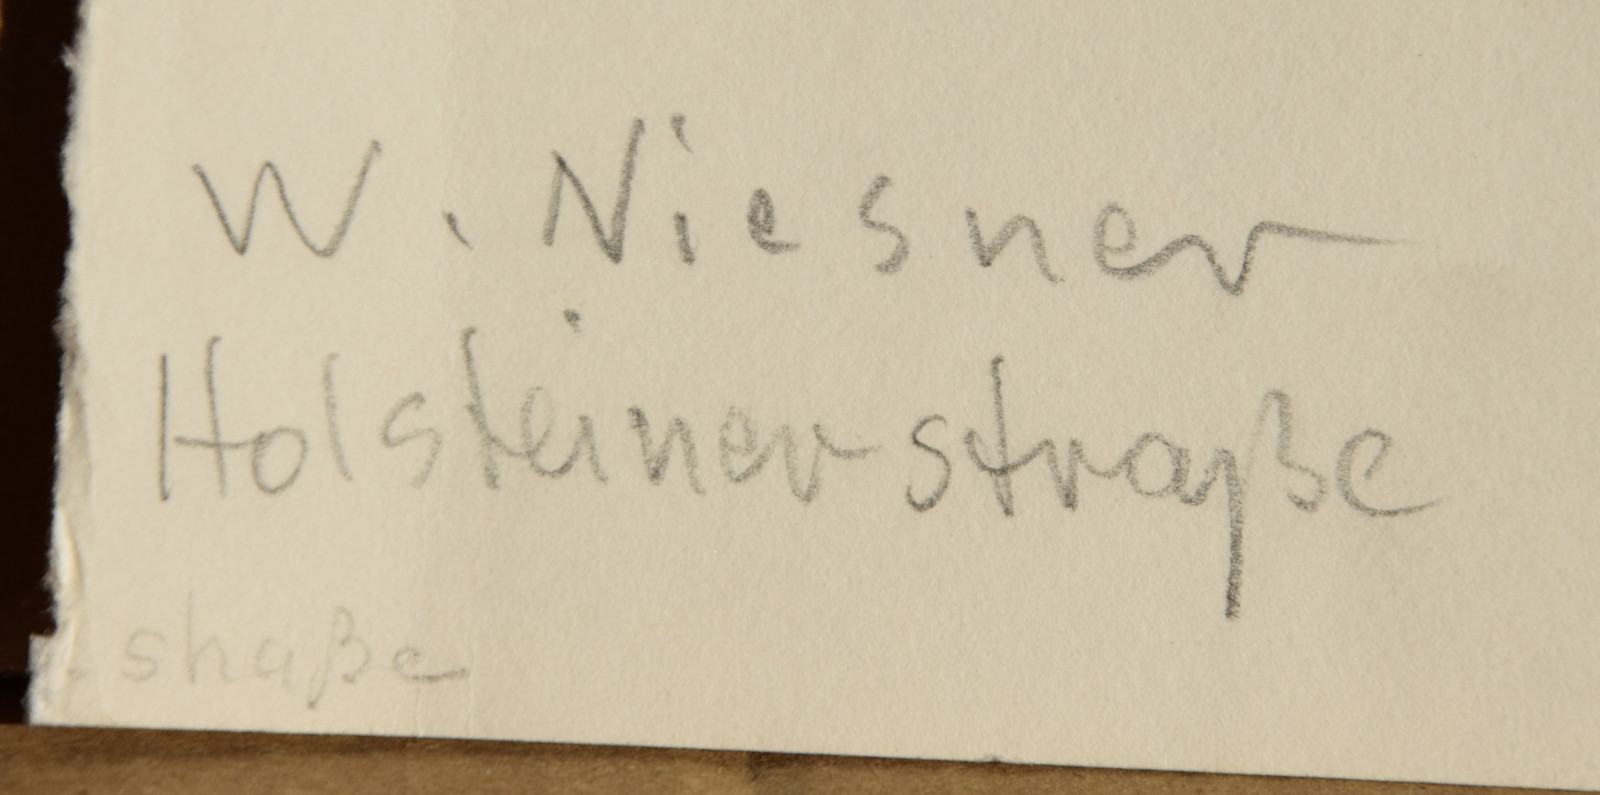 W. Niesner
Holsteinerstraße
straße